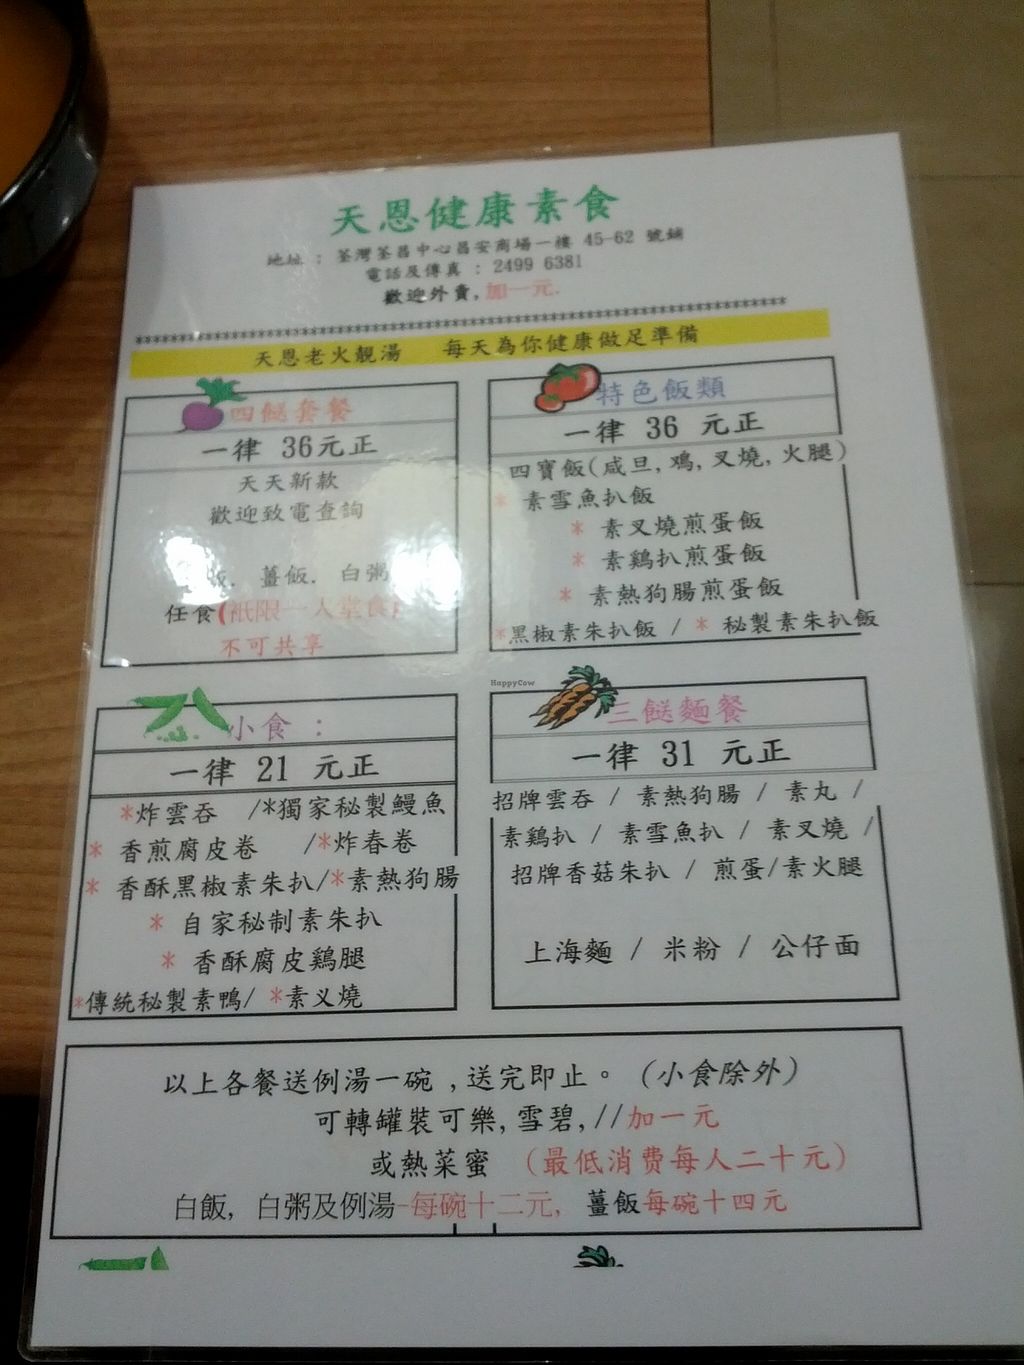 天恩健康素食
地址 : 荃灣荃昌中心昌安商場一樓 45-62 號鋪
電話及傳真 : 2499 6381
歡迎外賣,加一元.
天恩老火靚湯 每天為你健康做足準備
四餸套餐
一律 36元正
天天新款
歡迎致電查詢
飯. 薑飯. 白粥
任食(衹限一人堂食)
不可共享
特色飯類
一律 36 元正
四寶飯(咸旦,鸡,叉燒,火腿)
* 素雪魚扒飯
* 素叉燒煎蛋飯
* 素鷄扒煎蛋飯
* 素熱狗腸煎蛋飯
*黑椒素朱扒飯 / * 秘製素朱扒飯
HappyCow
小食 :
一律 21 元正
*炸雲吞 /*獨家秘製鰻魚
* 香煎腐皮卷 /*炸春卷
* 香酥黑椒素朱扒/*素熱狗腸
* 自家秘制素朱扒
* 香酥腐皮鷄腿
*傳統秘製素鴨/ *素义燒
三餸麵餐
一律 31 元正
招牌雲吞 / 素熱狗腸 / 素丸 /
素鷄扒 / 素雪魚扒 / 素叉燒 /
招牌香菇朱扒 / 煎蛋/素火腿
上海麵 / 米粉 / 公仔面
以上各餐送例湯一碗 ,送完即止。 (小食除外)
可轉罐裝可樂,雪碧,//加一元
或熱菜蜜 (最低消费每人二十元)
白飯, 白粥及例湯-每碗十二元, 薑飯每碗十四元